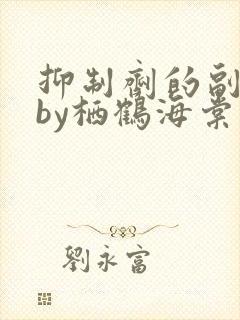 抑制剂的副
by栖鹤海棠
劉永富